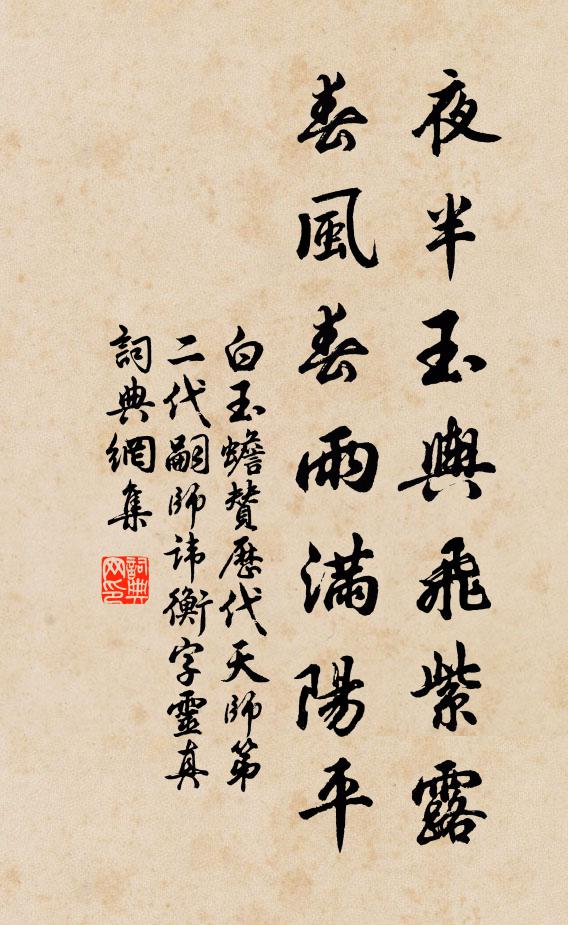 夜半玉輿飛紫露
春風春雨滿陽平
白玉蟾贊歷代天師第
二代嗣師諱衡字靈真
詞典網集
詞典网印